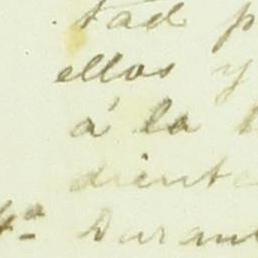 tad p
ellos y
á la
diente
4ª Duran